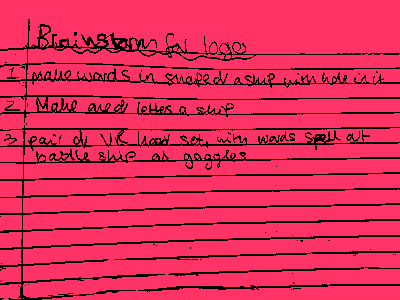 Brainstorm for logo
1 make words in shaped a ship with hole in it
2 Make and letters a ship
3 pair of VR head set, with words spell out
battle ship as goggles